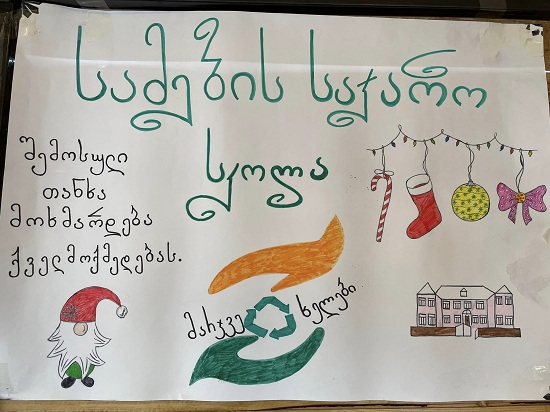 სამების საჯარო
სკოლა
შემოსული
თანხა
მოხმარდება
ქველმოქმედებას.
მარჯვე ხელები